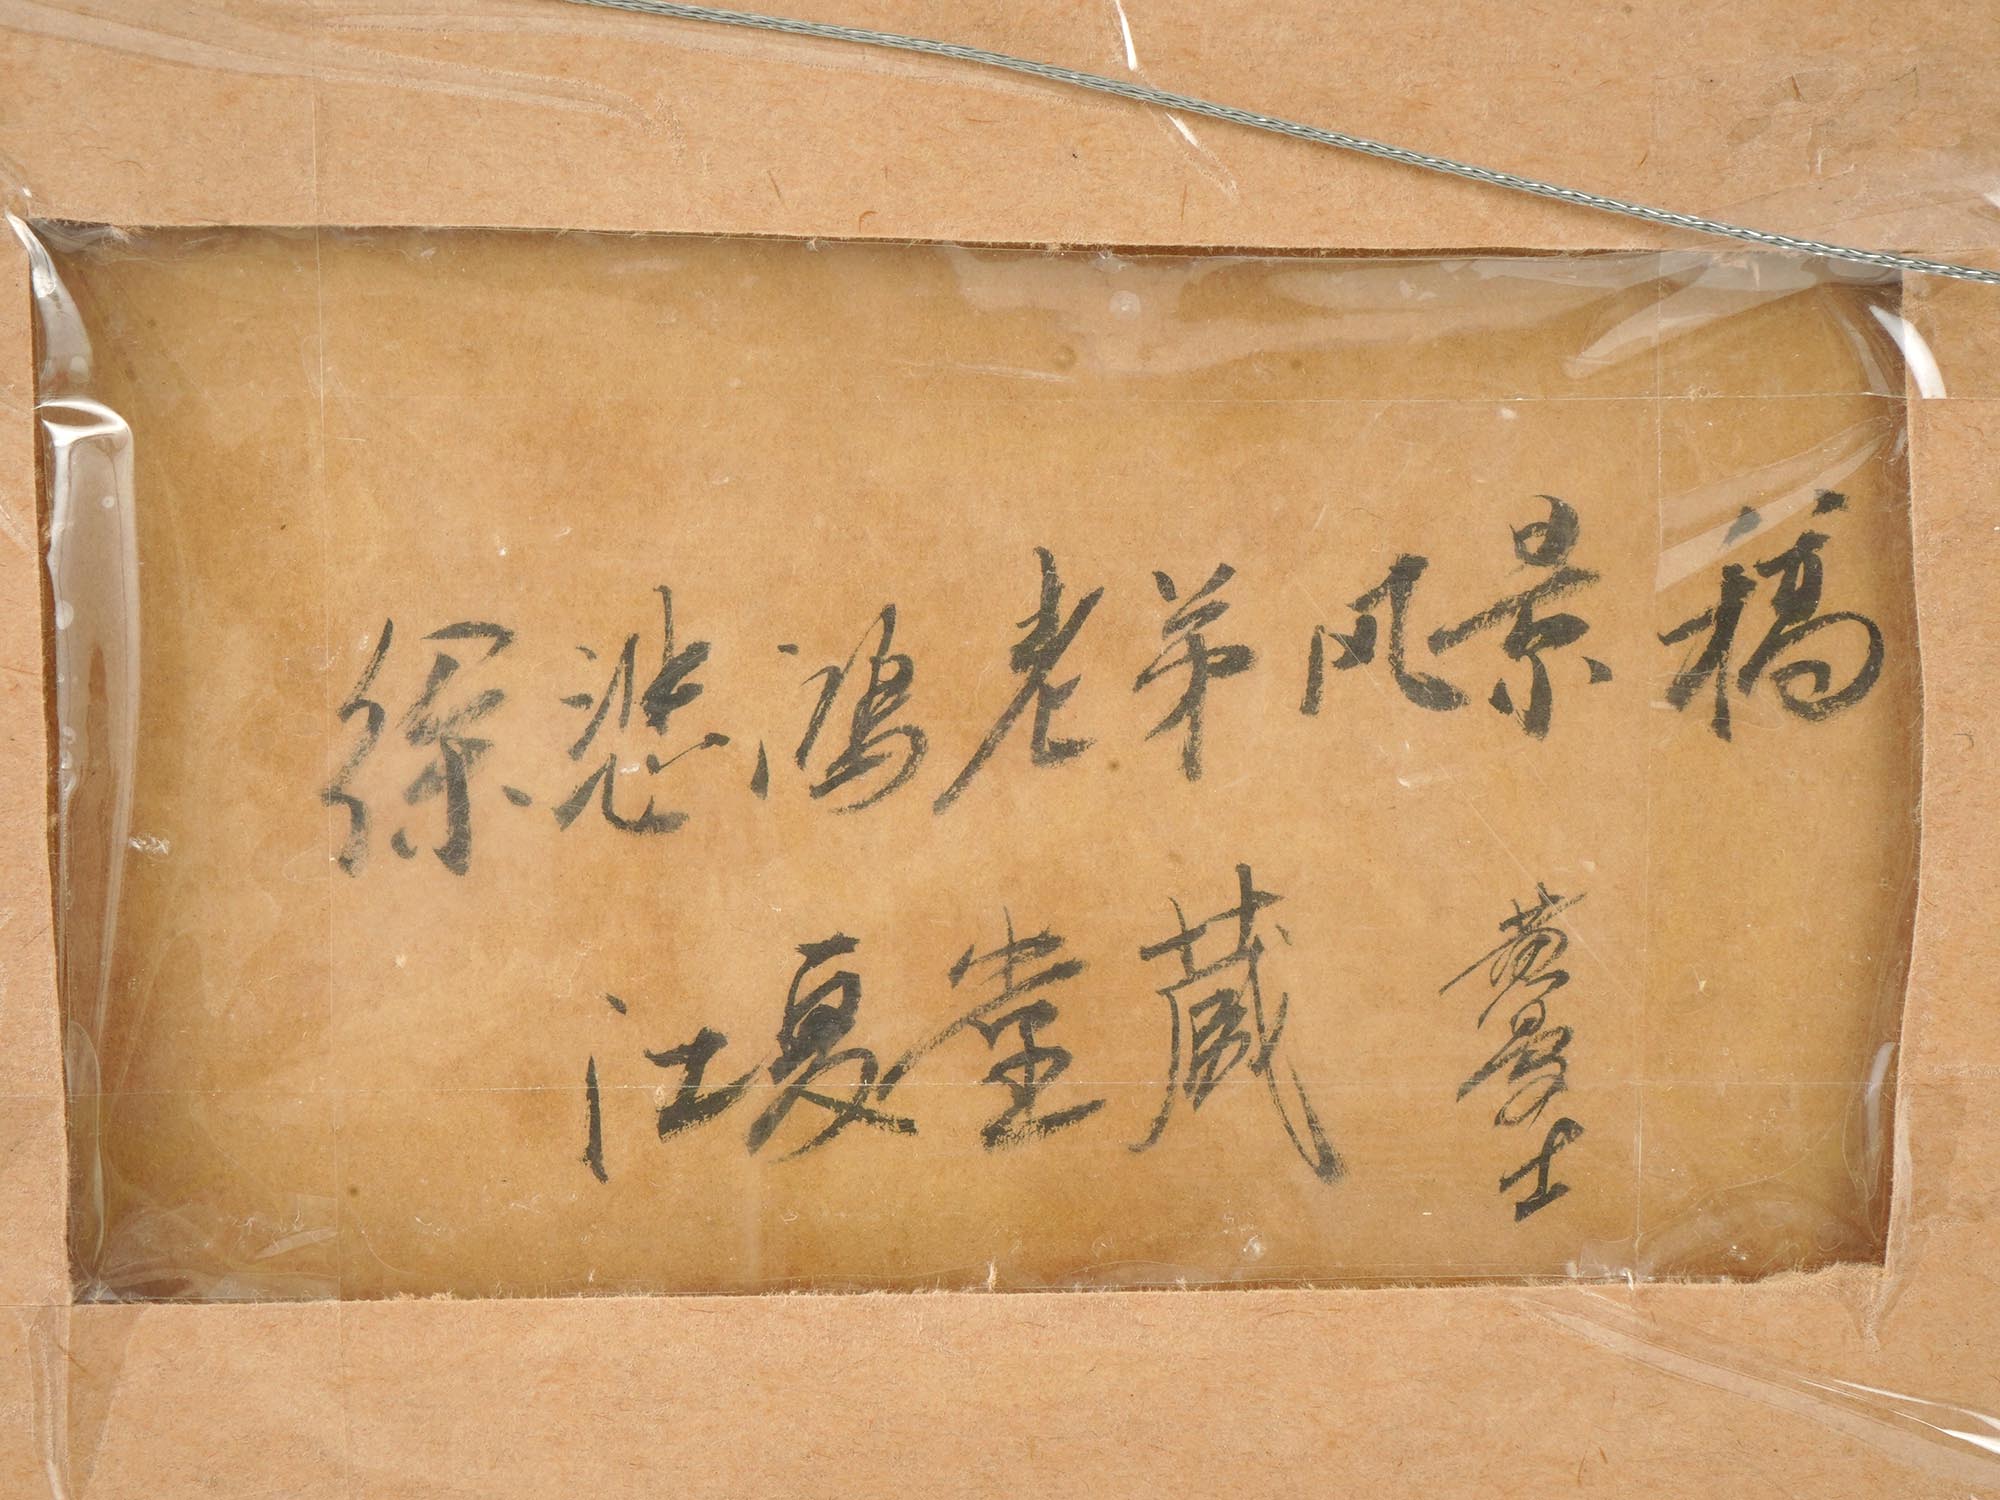 徐悲鸿老弟风景稿
江夏堂藏 黄曼士